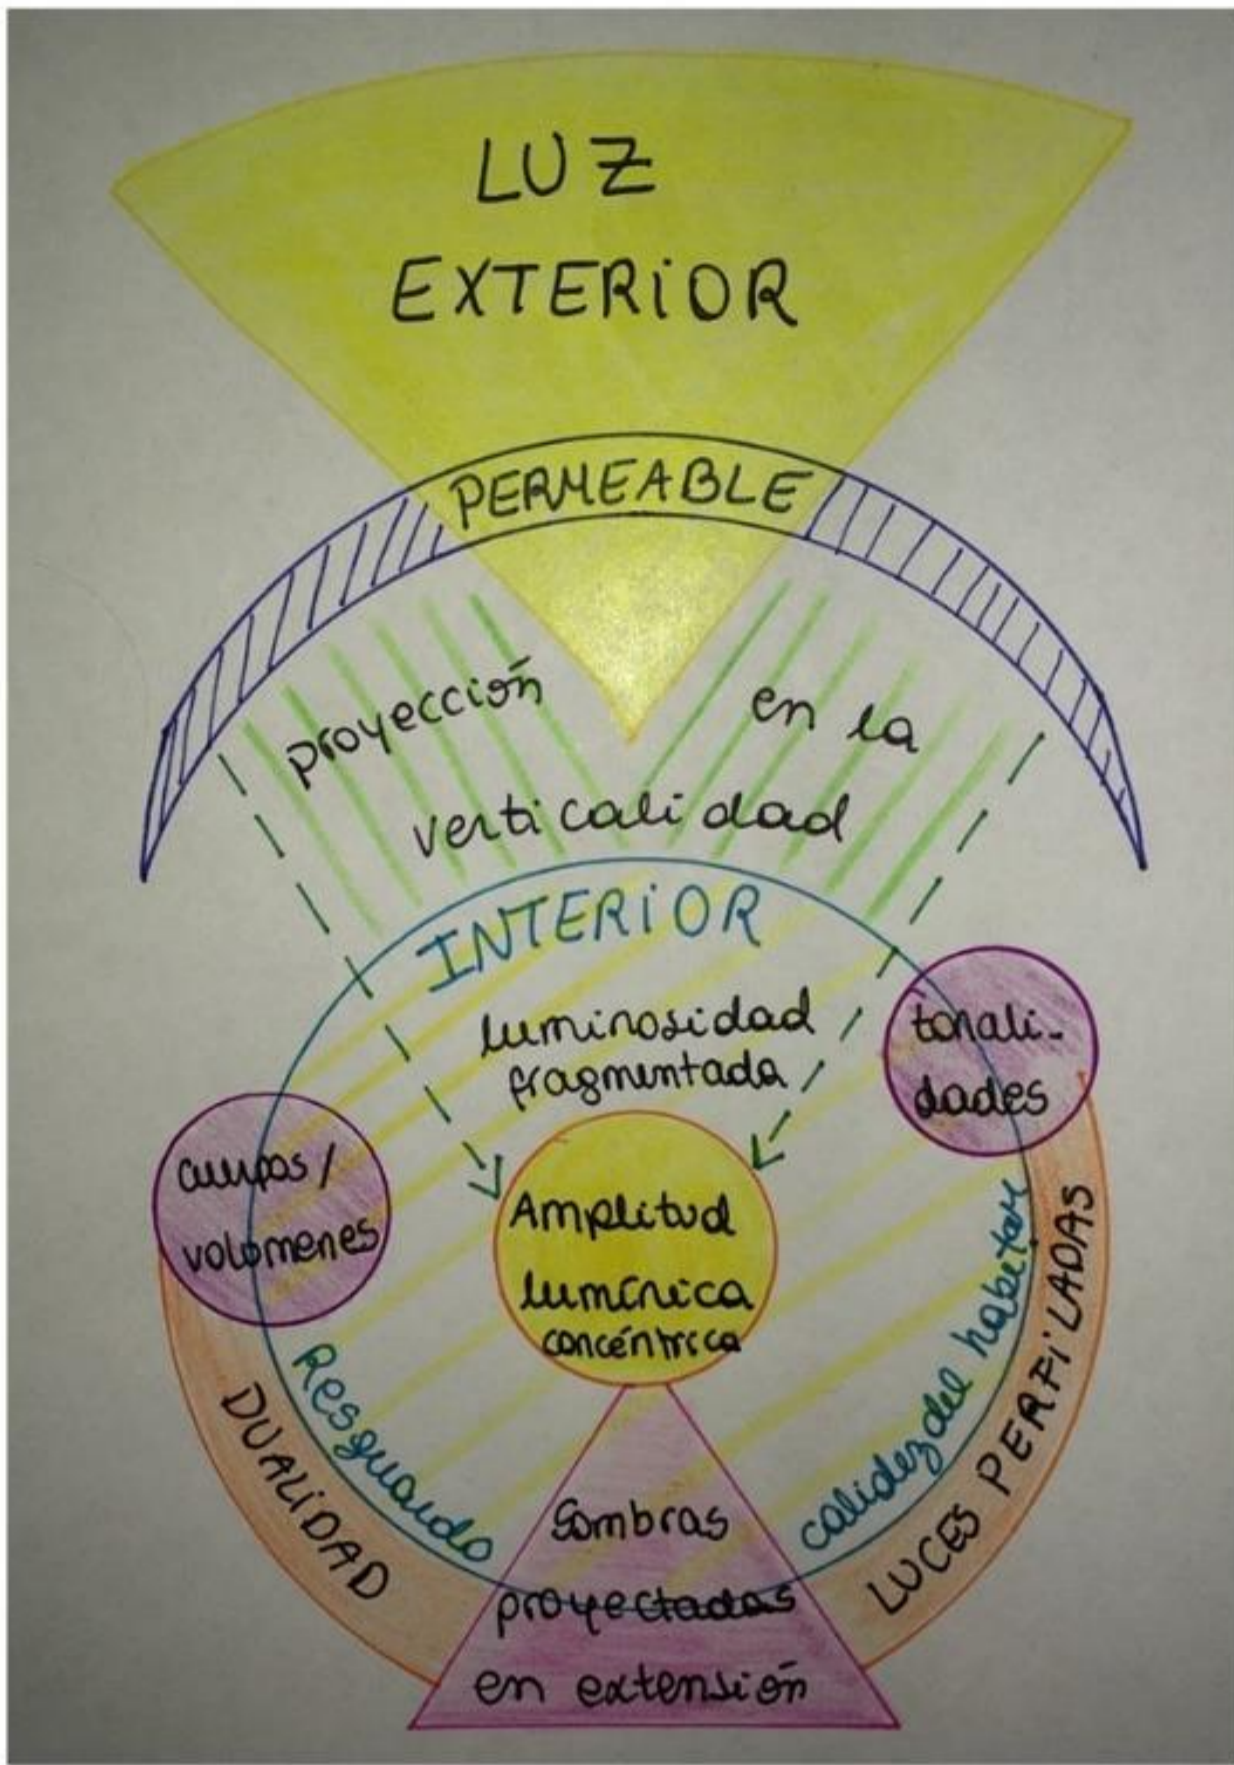 LUZ
EXTERIOR
PERMEABLE
proyección
en la
verticalidad
INTERIOR
luminosidad
fragmentada
tonali-
dades
cuerpos/
volúmenes
Amplitud
lumínica
concéntrica
Resguardo
calidez del habitar
DUALIDAD
LUCES PERFILADAS
Sombras
proyectadas
en extensión